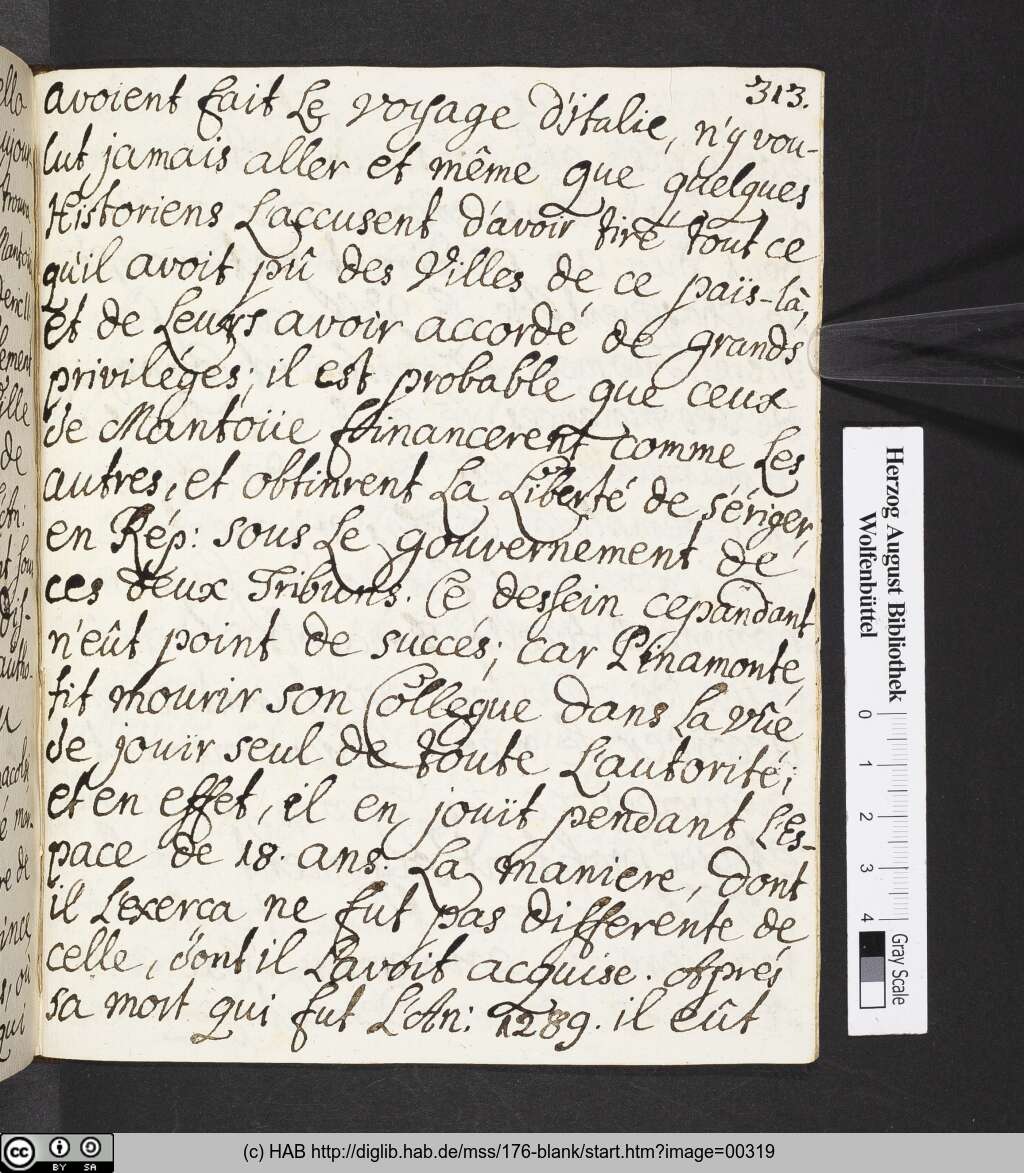 313.
avoient fait Le voyage d'italie, n'y vou-
lut jamais aller et même que quelques
Historiens L'accusent d'avoir tiré tout ce
qu'il avoit pû des Villes de ce païs-là,
et de Leurs avoir accordé de grands
priviléges; il est probable que ceux
de Mantoüe financerent comme Les
autres, et obtinrent La Liberté de s'ériger
en Rép: sous Le gouvernement de
ces deux Tribuns. Ce dessein cependant
n'eût point de succés; car Pinamonte
fit mourir son Collegue dans La vûe
de jouïr seul de toute L'autorité;
et en effet, il en jouït pendant L'Es-
pace de 18. ans. La maniere, dont
il L'exerça ne fut pas differente de
celle, dont il L'avoit acquise. Aprés
sa mort qui fut L'An: 1289. il eût
Herzog August Bibliothek
Wolfenbüttel
0 1 2 3 4
Gray Scale
cc BY SA
(c) HAB http://diglib.hab.de/mss/176-blank/start.htm?image=00319